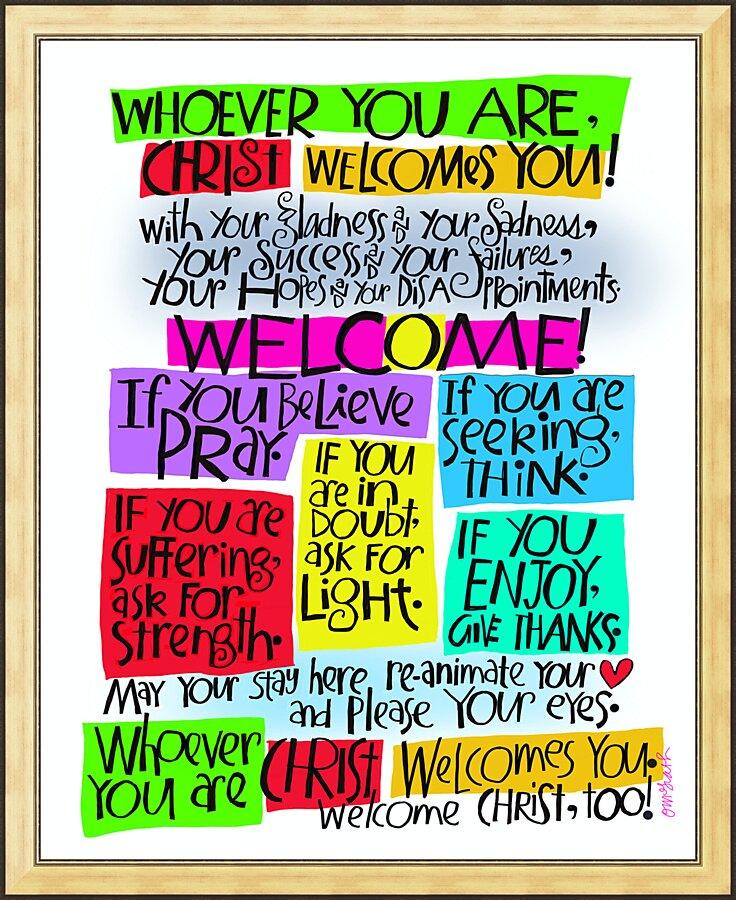 WHOEVER YOU ARE,
CHRIST WELCOMES YOU!
with your gladness AND your sadness,
your success AND your failures,
your Hopes AND your DISAppointments.
WELCOME!
If you Believe
PRay.
If you are
seeking,
THINK.
IF YOU
are in
DOUBT,
ask FOR
LIGHT.
IF YOU are
suffering,
ask FOR
strength.
IF YOU
ENJOY,
GIVE THANKS.
May your stay here re-animate your
and please your eyes.
Whoever
you are
CHRIST
Welcomes You.
Welcome CHRIST, TOO!